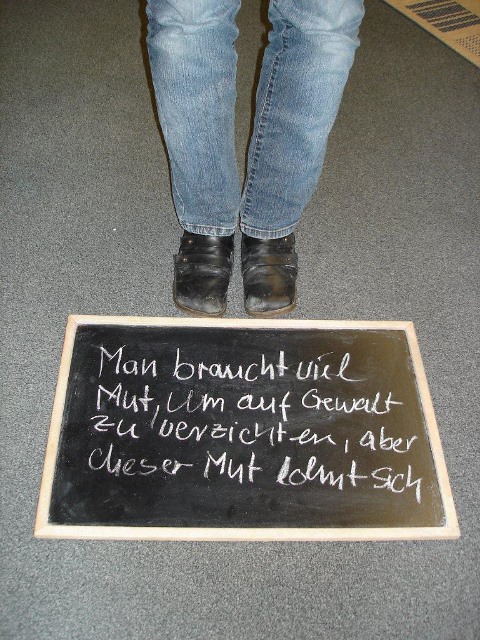 Man braucht viel
Mut, um auf Gewalt
zu verzichten, aber
dieser Mut lohnt sich